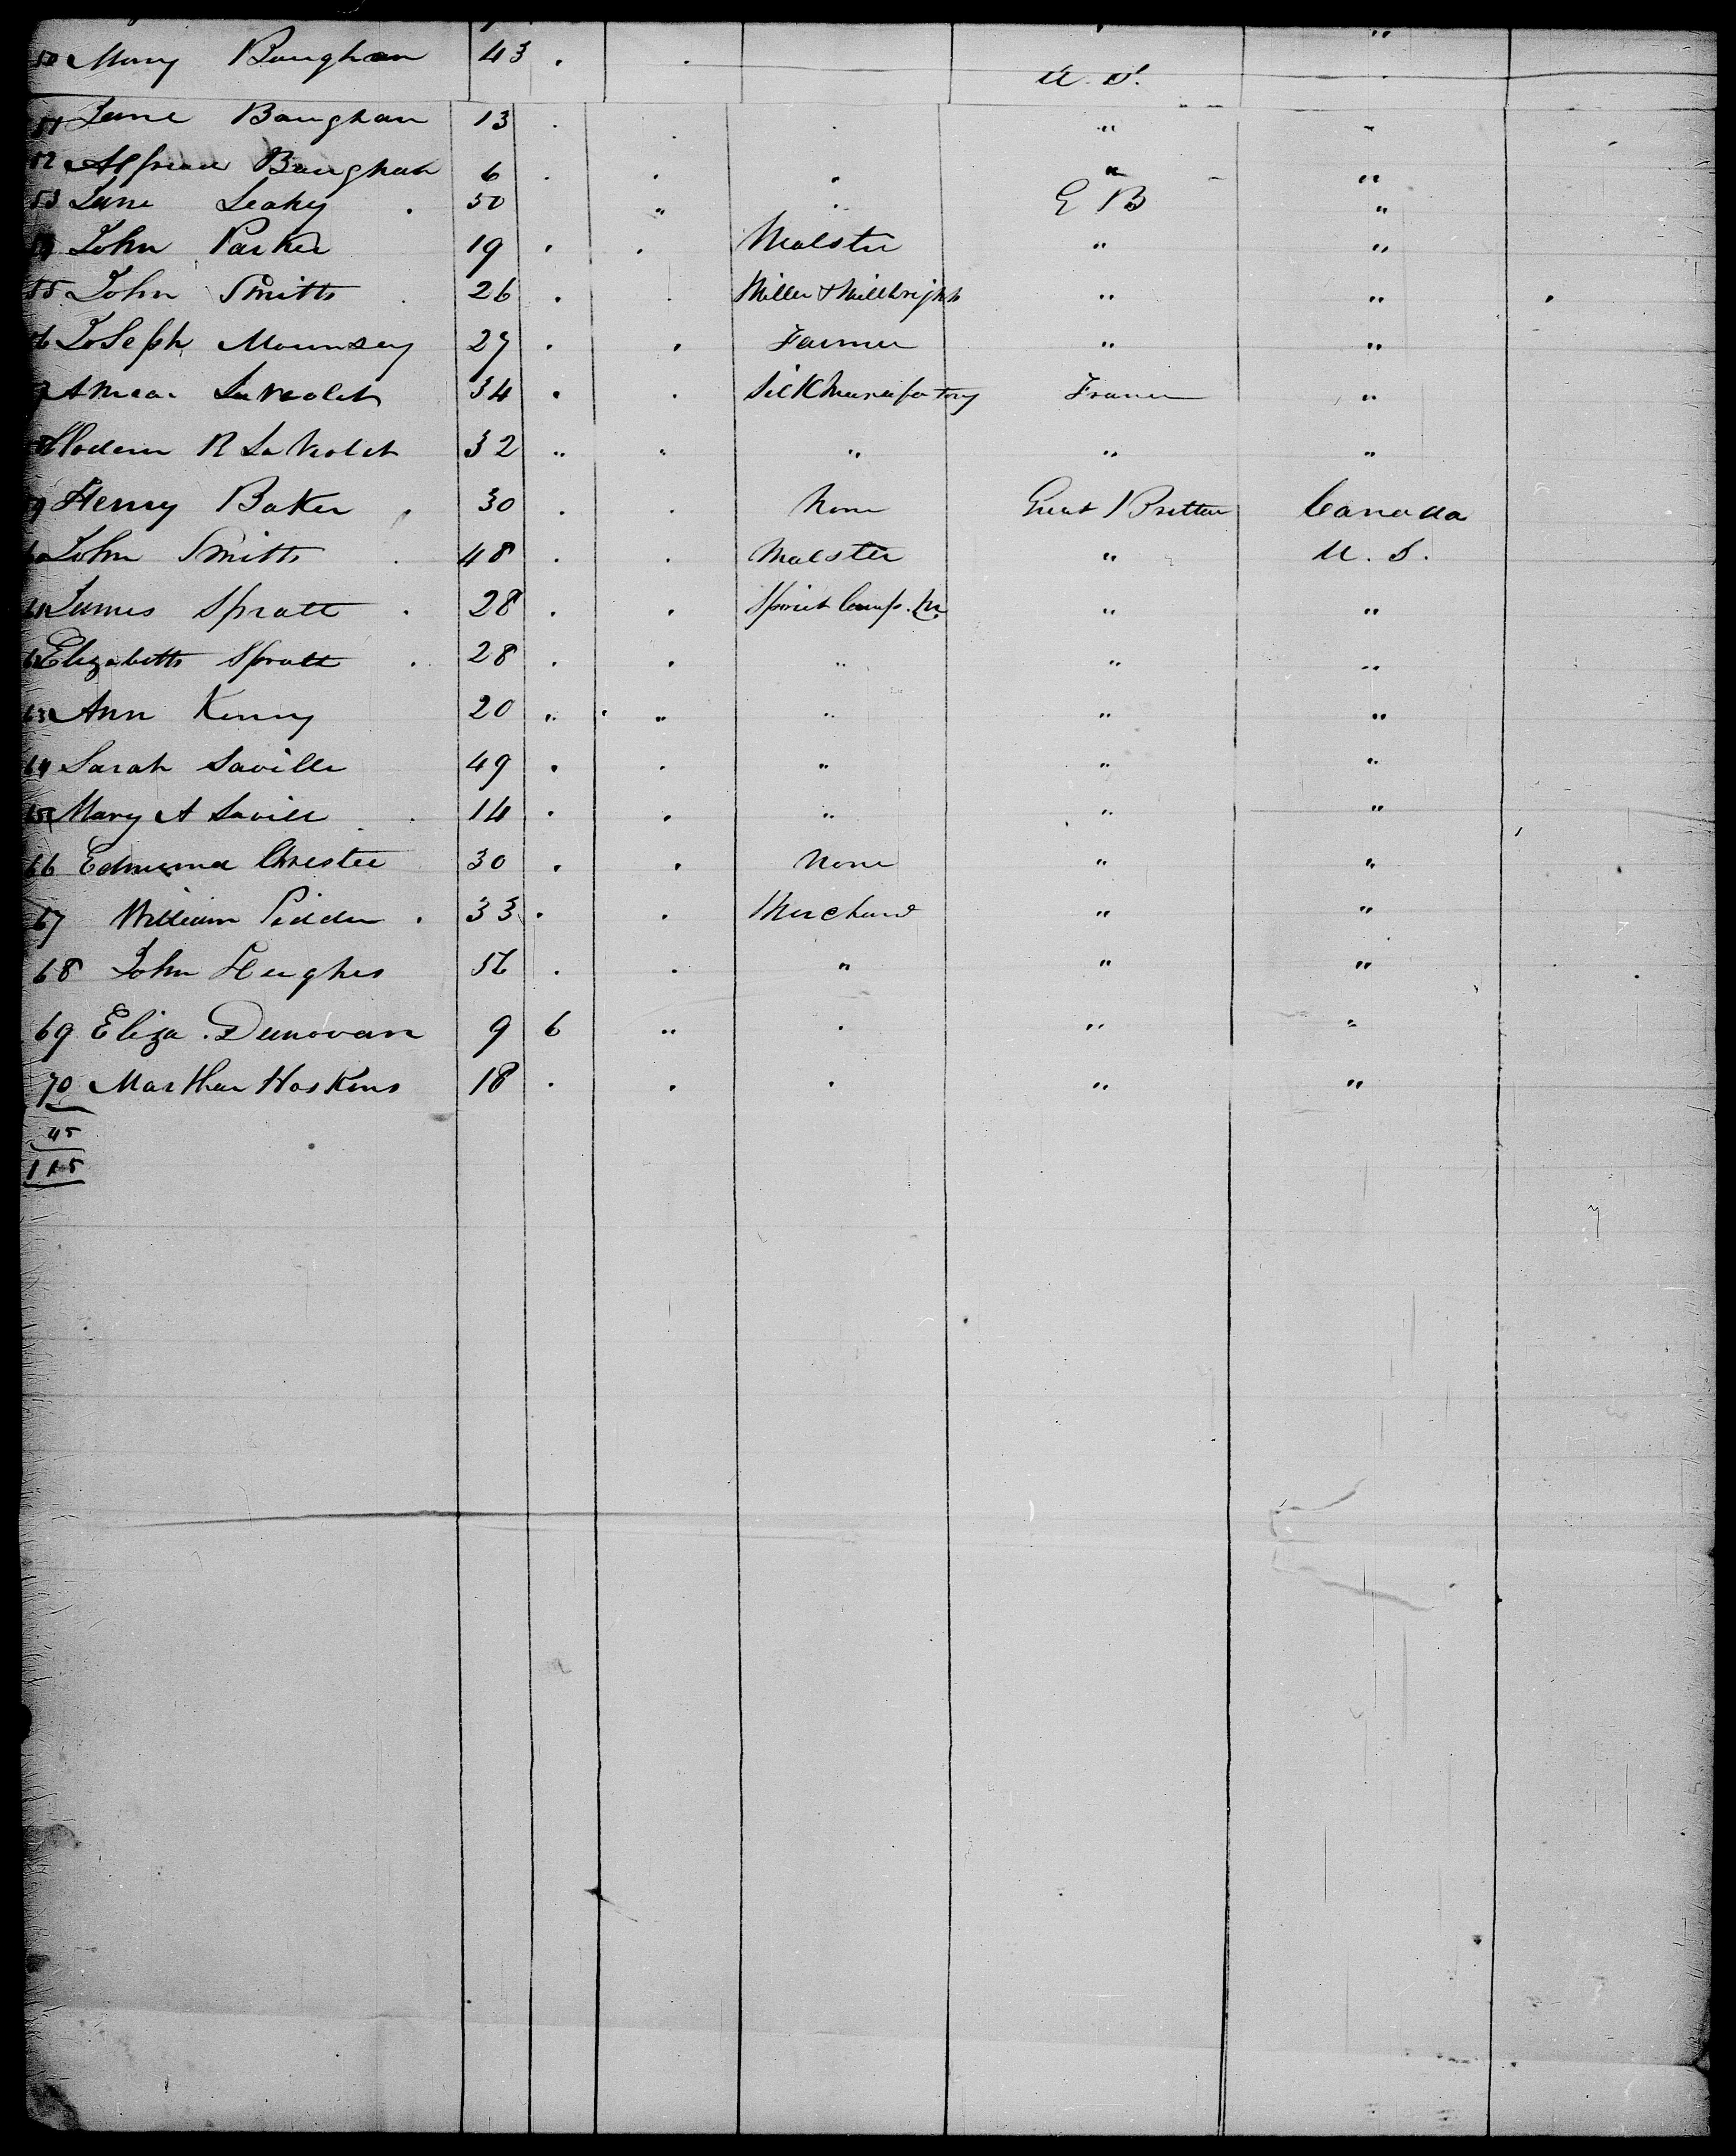 50 Mary Baughan 43 . . U. S. "
51 Jane Baughan 13 . . . " "
52 Alfread Baughan 6 . . . " "
53 Jane Leahy . 50 " . G B "
54 John Parker 19 . . Malster " "
55 John Smith . 26 . . Miller & Millwright " "
56 Joseph Mounsey 27 . . Farmer " "
34 . . Silk France "
R 32 " " " " "
59 Henry Baker . 30 . . None Great Britten Canada
60 John Smith . 48 . . Malster " U. S.
61 James Spratt . 28 . . " "
62 Elizabeth Spratt . 28 . . " " "
63 Ann Kenny 20 " " " " "
64 Sarah Saville 49 . . " " "
65 Mary A Savill . 14 . . " " "
66 Edmund 30 . . None " "
67 William . 33 . . Merchant " "
68 John Hughes 56 . . " " "
69 Eliza Dunovan 9 6 " . " "
70 Marthar Hoskins 18 . . . " "
45
115